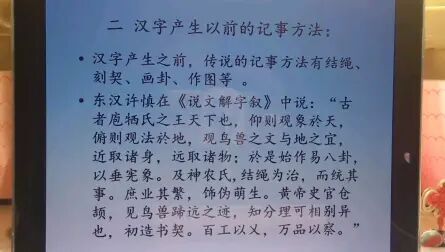 二 汉字产生以前的记事方法:
• 汉字产生之前，传说的记事方法有结绳、
刻契、画卦、作图等 。
• 东汉许慎在《说文解字叙》中说：“古
者庖牺氏之王天下也，仰则观象於天，
俯则观法於地，观鸟兽之文与地之宜，
近取诸身，远取诸物；於是始作易八卦，
以垂宪象。及神农氏,结绳为治，而统其
事。庶业其繁，饰伪萌生。黄帝史官仓
颉，见鸟兽蹄迒之迹，知分理可相别异
也，初造书契。百工以乂，万品以察。”